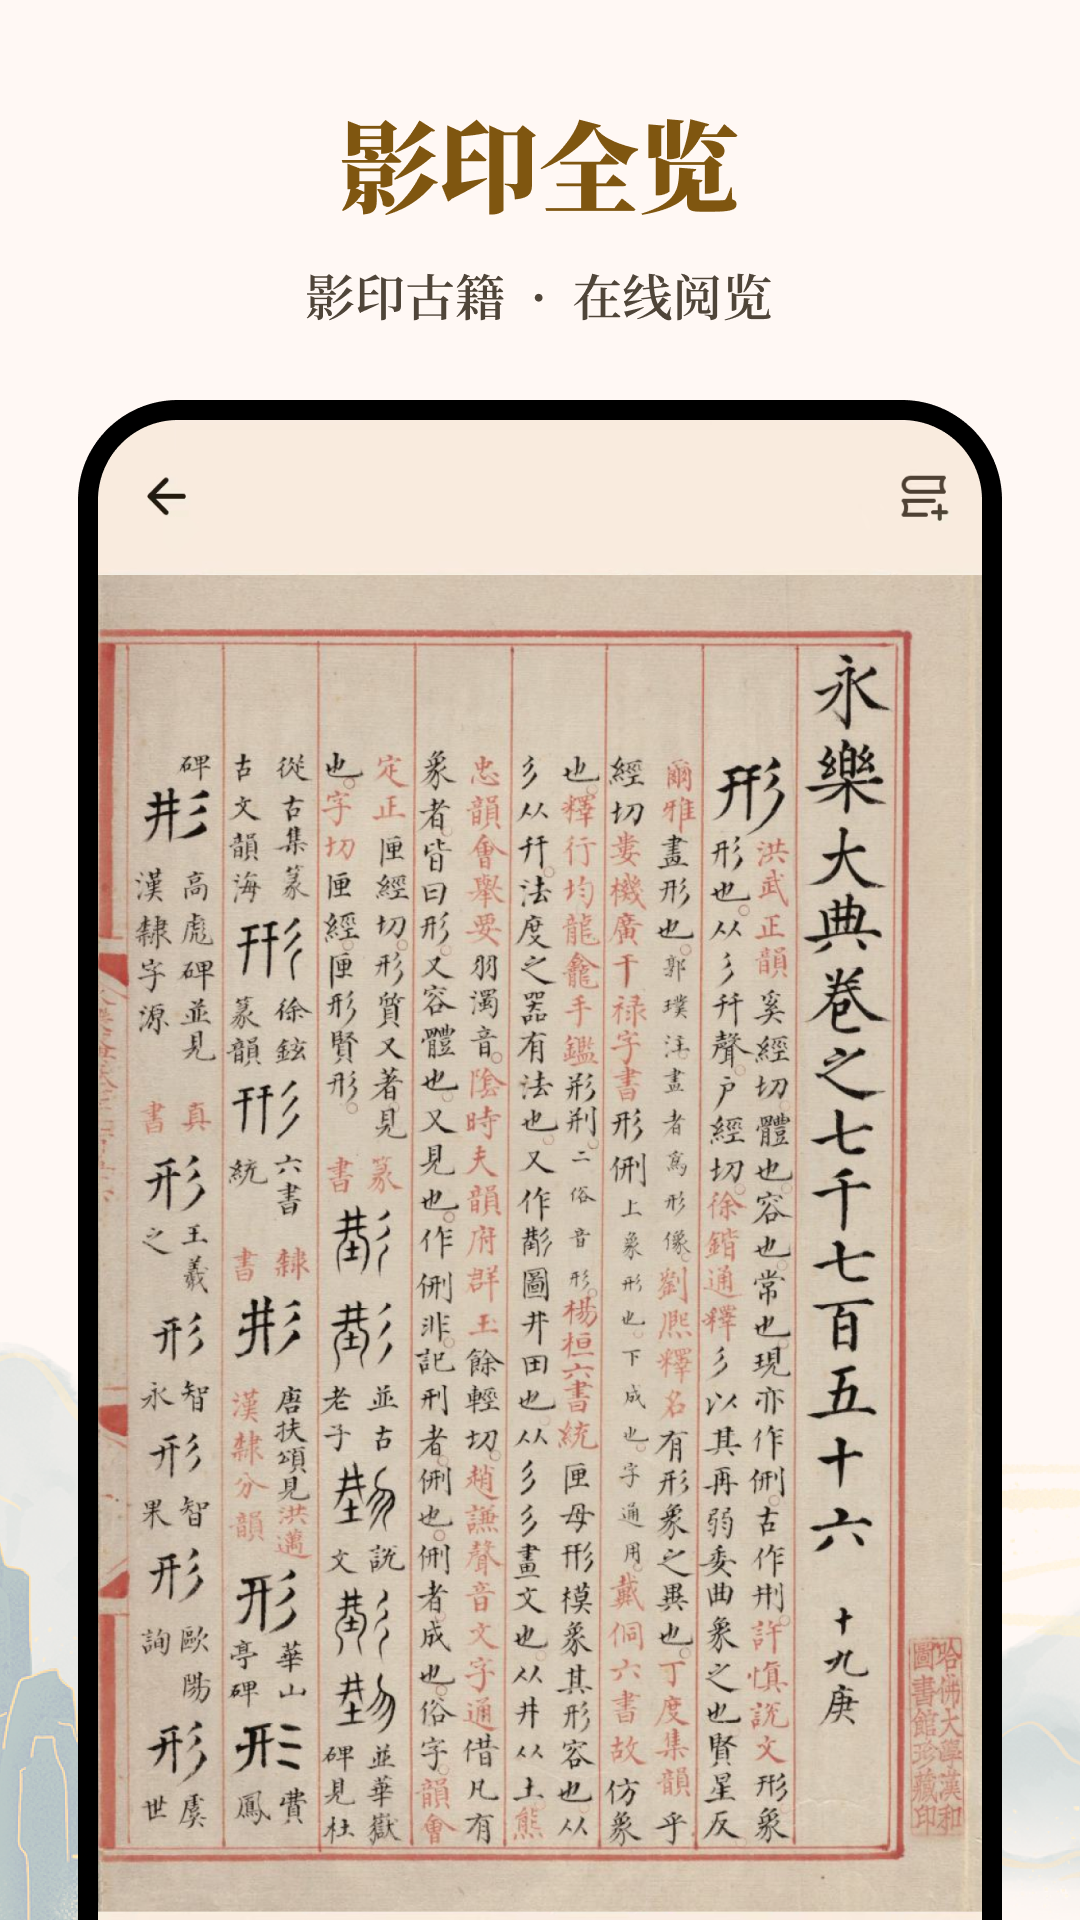 影印全览
影印古籍 · 在线阅览
永樂大典卷之七千七百五十六 十九庚
形
洪武正韻奚經切體也容也常也現亦作侀古作㓝許慎説文形象
形也从彡幵聲戶經切徐鍇通釋彡以其再弱委曲象之也賢星反
爾雅畫形也郭璞注畫者寫形像劉熈釋名有形象之異也丁度集韻乎
經切婁機廣干禄字書形侀上象形也下成也字通用戴侗六書故仿象
也釋行均龍龕手鑑形㓝二俗音形楊桓六書統匣母形模象其形容也从
彡从幵法度之器有法也又作圖井田也从彡彡畫文也从井从土熊
忠韻會舉要羽濁音陰時夫韻府群玉餘輕切趙謙聲音文字通借凡有
象者皆曰形又容體也又見也作侀非記刑者侀也侀者成也俗字韻會
定正匣經切形質又著見
也字切匣經匣形賢形
篆書
並古老子
說文
並華嶽碑見杜
從古集篆古文韻海
形
徐鉉篆韻
形
六書統
隸書
形
唐扶頌見洪邁漢隸分韻
形
華山亭碑
形
費鳳
碑
形
高彪碑並見漢隸字源
真書
形
王羲之
形
智永
形
智果
形
歐陽詢
形
虞世
哈佛大學漢和
圖書館珍藏印